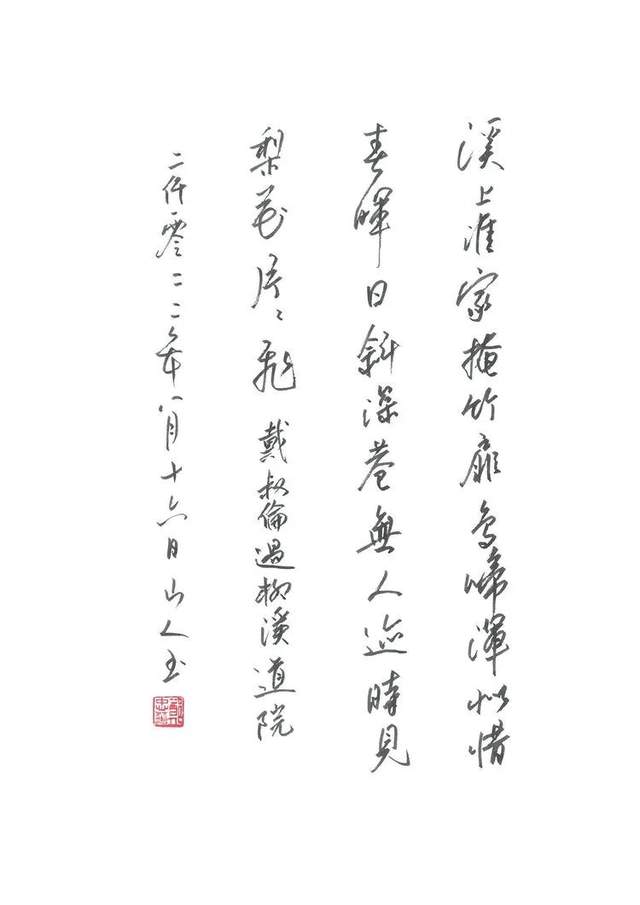 溪上誰家掩竹扉鳥啼渾似惜
春暉日斜深巷無人迹時見
梨花片々飛 戴叔倫過柳溪道院
二仟零二二年八月十六日山人玉